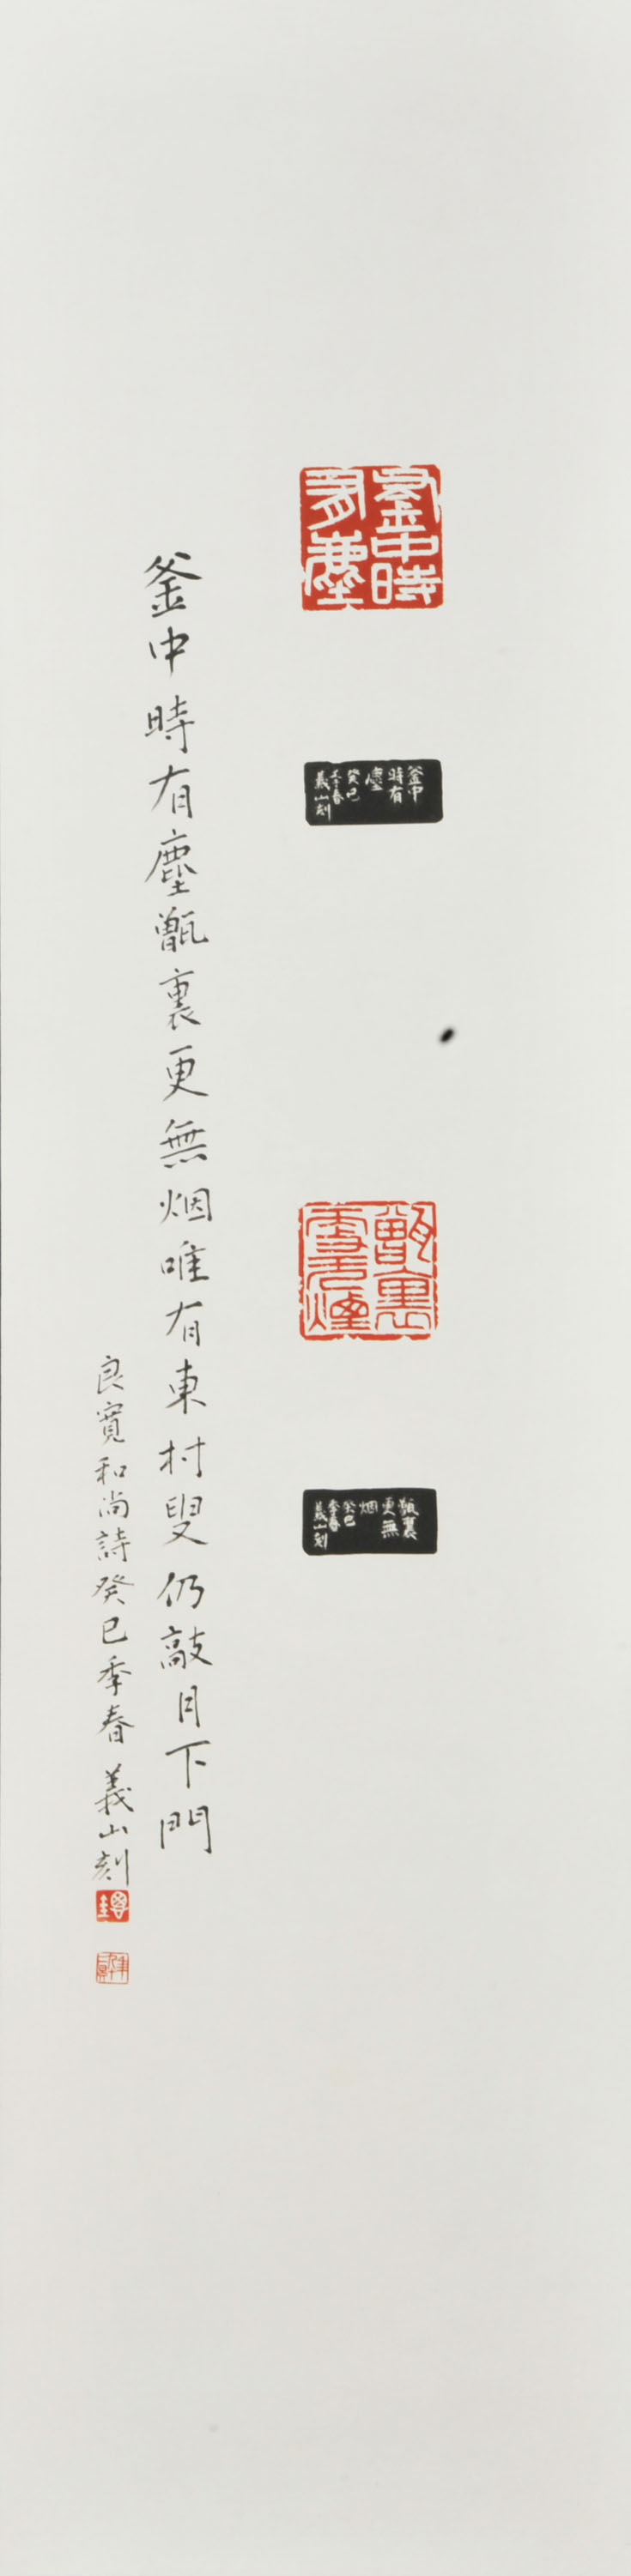 釜中時
有塵
釜中
時有
塵
癸巳
季春
義山刻
甑裏
更無烟
甑裏
更無
烟
癸巳
季春
義山刻
釜中時有塵甑裏更無烟唯有東村叟仍敲月下門
良寛和尚詩癸巳季春 義山刻